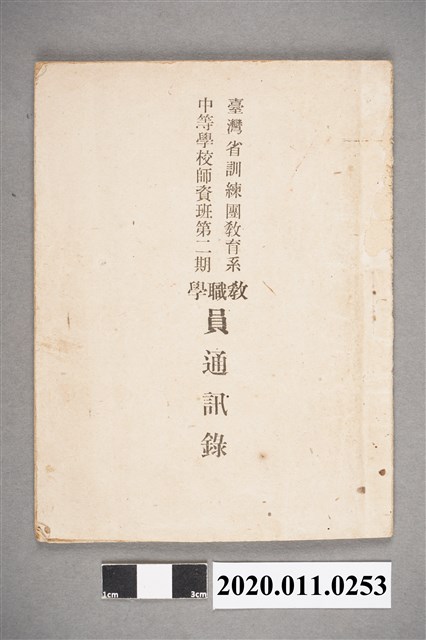 臺灣省訓練團教育系
中等學校師資班第二期
教職學
員通訊錄
1cm
3cm
2020.011.0253